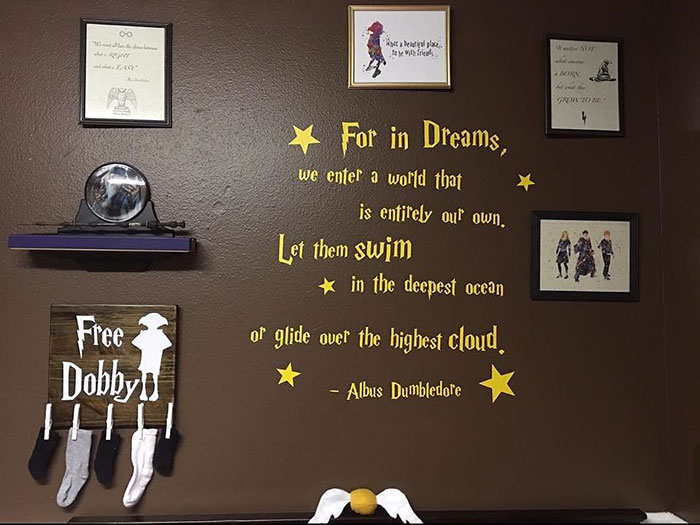 "We must all face the choice between
what is RIGHT
and what is EASY"
Albus Dumbledore
a beautiful place..
to be with friends
It matters NOT
what someone
is BORN,
but what they
GROW TO BE."
For in Dreams,
we enter a world that
is entirely our own.
Let them swim
in the deepest ocean
or glide over the highest cloud.
- Albus Dumbledore
Free
Dobby